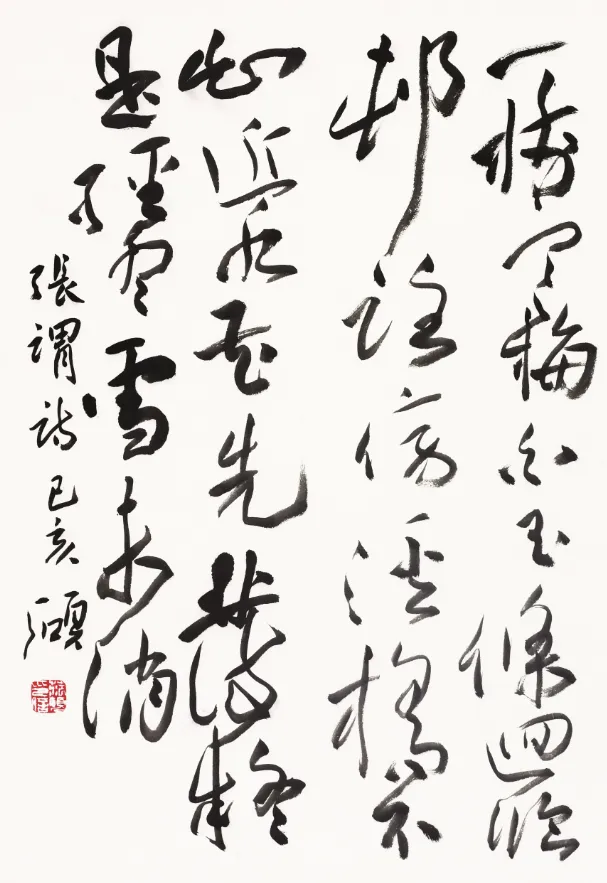 一樹寒梅白玉條迴臨
邨路傍溪橋不
知近水花先發疑
是經冬雪未消
張謂詩己亥碩